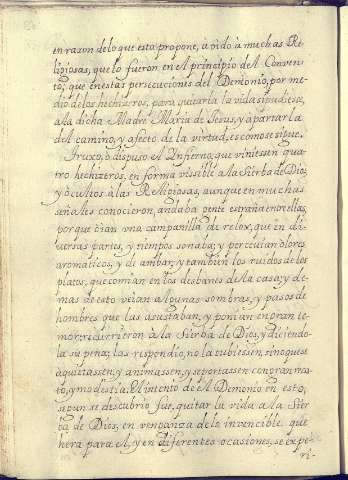 en razon de lo que esta propone, a oido à muchas Re-
ligiosas, que lo fueron en el principio del Conven-
to, que en estas persecuciones del Demonio, por me-
dio de los hechizeros, para quitarla la vida si pudiesse,
a la dicha Madre Maria de Jesus, y apartarla
del camino, y afecto de la virtud, es como se sigue.
Truxo, ò dispuso el Infierno, que viniessen qua-
tro hechizeros, en forma vissible a la Sierba de Dios,
y ocultos à las Religiosas, aunque en muchas
señales conocieron, andaba gente estraña entre ellas,
porque oian vna campanilla de relox, que en di-
uersas partes, y tiempos sonaba; y percevian olores
aromaticos, y de ambar; y tambien los ruidos de los
platos, que comian en los desbanes de la casa; y de-
mas de esto vêian algunas sombras, y pasos de
hombres que las asustaban, y ponian en gran te-
mor; recurrieron à la Sierba de Dios, y diciendo-
la su pena; las respondio, no la tubiessen, sino que se
aquietassen, y animassen, y se portassen con gran ma-
to, y modestia. El intento de el Demonio en esto,
segun se descubrio fue, quitar la vida a la Sier-
ba de Dios, en venganza de lo invencible que
hera para el, y en diferentes ocasiones, se expe-
ri-